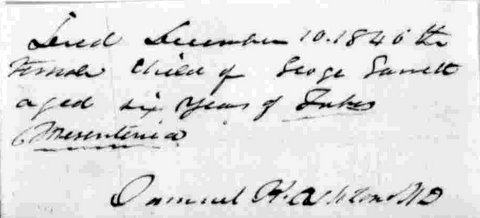 Died December 10. 1846 the
Female Child of George Garrett
aged six Years of Tabes
Mesenterica
Samuel K. M D